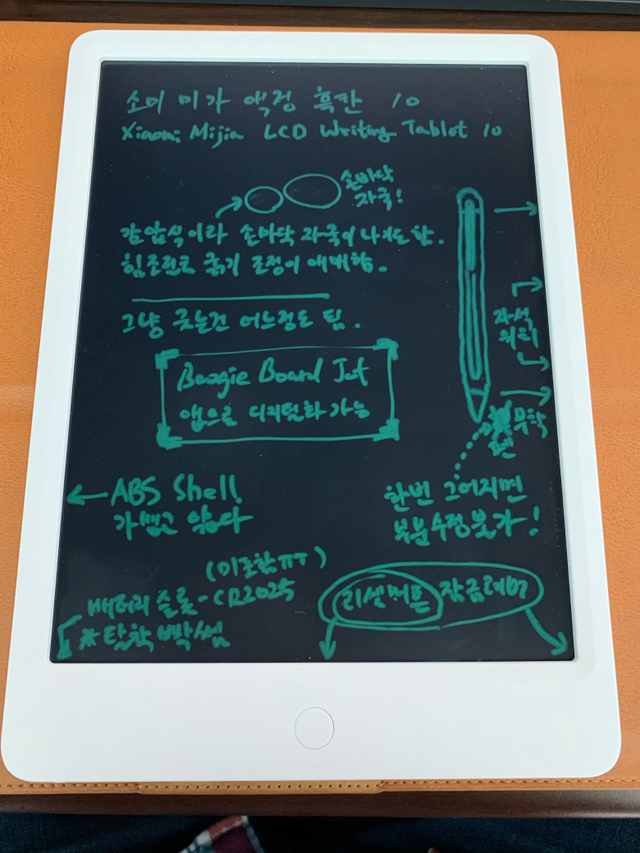 소미 미가 액정 흑판 10
Xiaomi Mijia LCD Writing Tablet 10
손바닥
자국!
감압식이라 손바닥 자국이 나기도 함.
힘조절로 굵기 조정이 애매함.
그냥 긋는건 어느정도 됨.
자석
위치
Boogie Board Jot
앱으로 디지털화 가능
무학
펜
ABS Shell
가볍고 얇다
한번 그어지면
부분수정 불가!
(미포함ㅠㅠ)
배터리 슬롯-CR2025
*탈착 빡쎔
리셋버튼 잠금레버